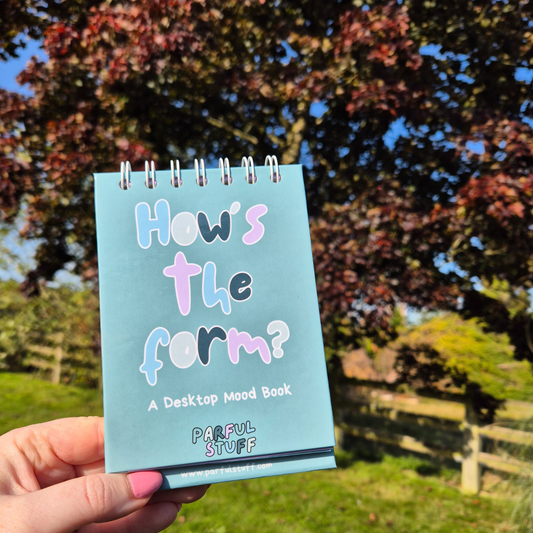 How's
the
form?
A Desktop Mood Book
PARFUL
STUFF
www.parfulstuff.com